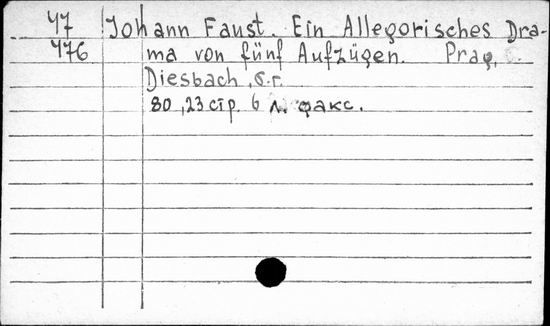 47 Johann Faust. Ein Allegorisches Dra-
476 ma von fünf Aufzügen. Prag,
Diesbach, б.г.
80, 23 стр. 6 л. факс.